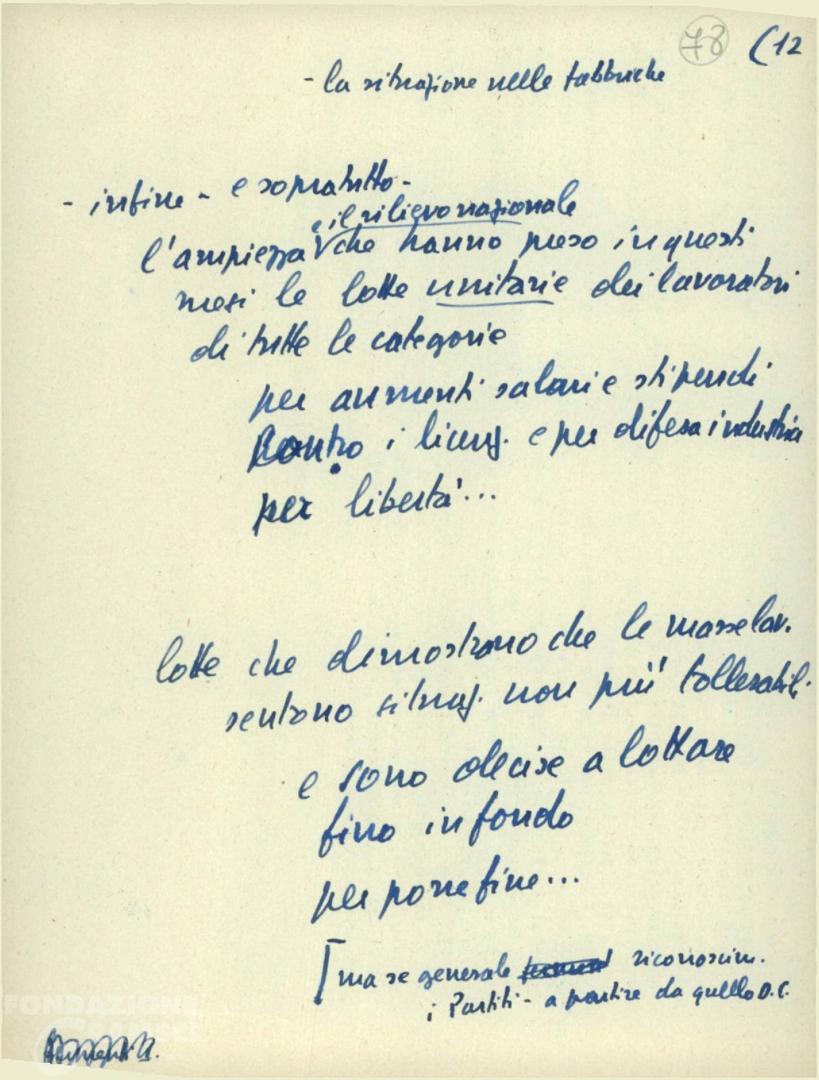 78 (12
- la situazione nelle fabbriche
- infine - e sopratutto -
e il rilievo nazionale
l'ampiezza che hanno preso in questi
mesi le lotte unitarie dei lavoratori
di tutte le categorie
per aumenti salari e stipendi
contro i licenz. e per difesa industria
per libertà...
lotte che dimostrano che le masse lav.
sentono situaz. non più tollerabili
e sono decise a lottare
fino in fondo
per porre fine...
[ ma se generale riconoscim.
i Partiti - a partire da quello D.C.
FONDAZIONE